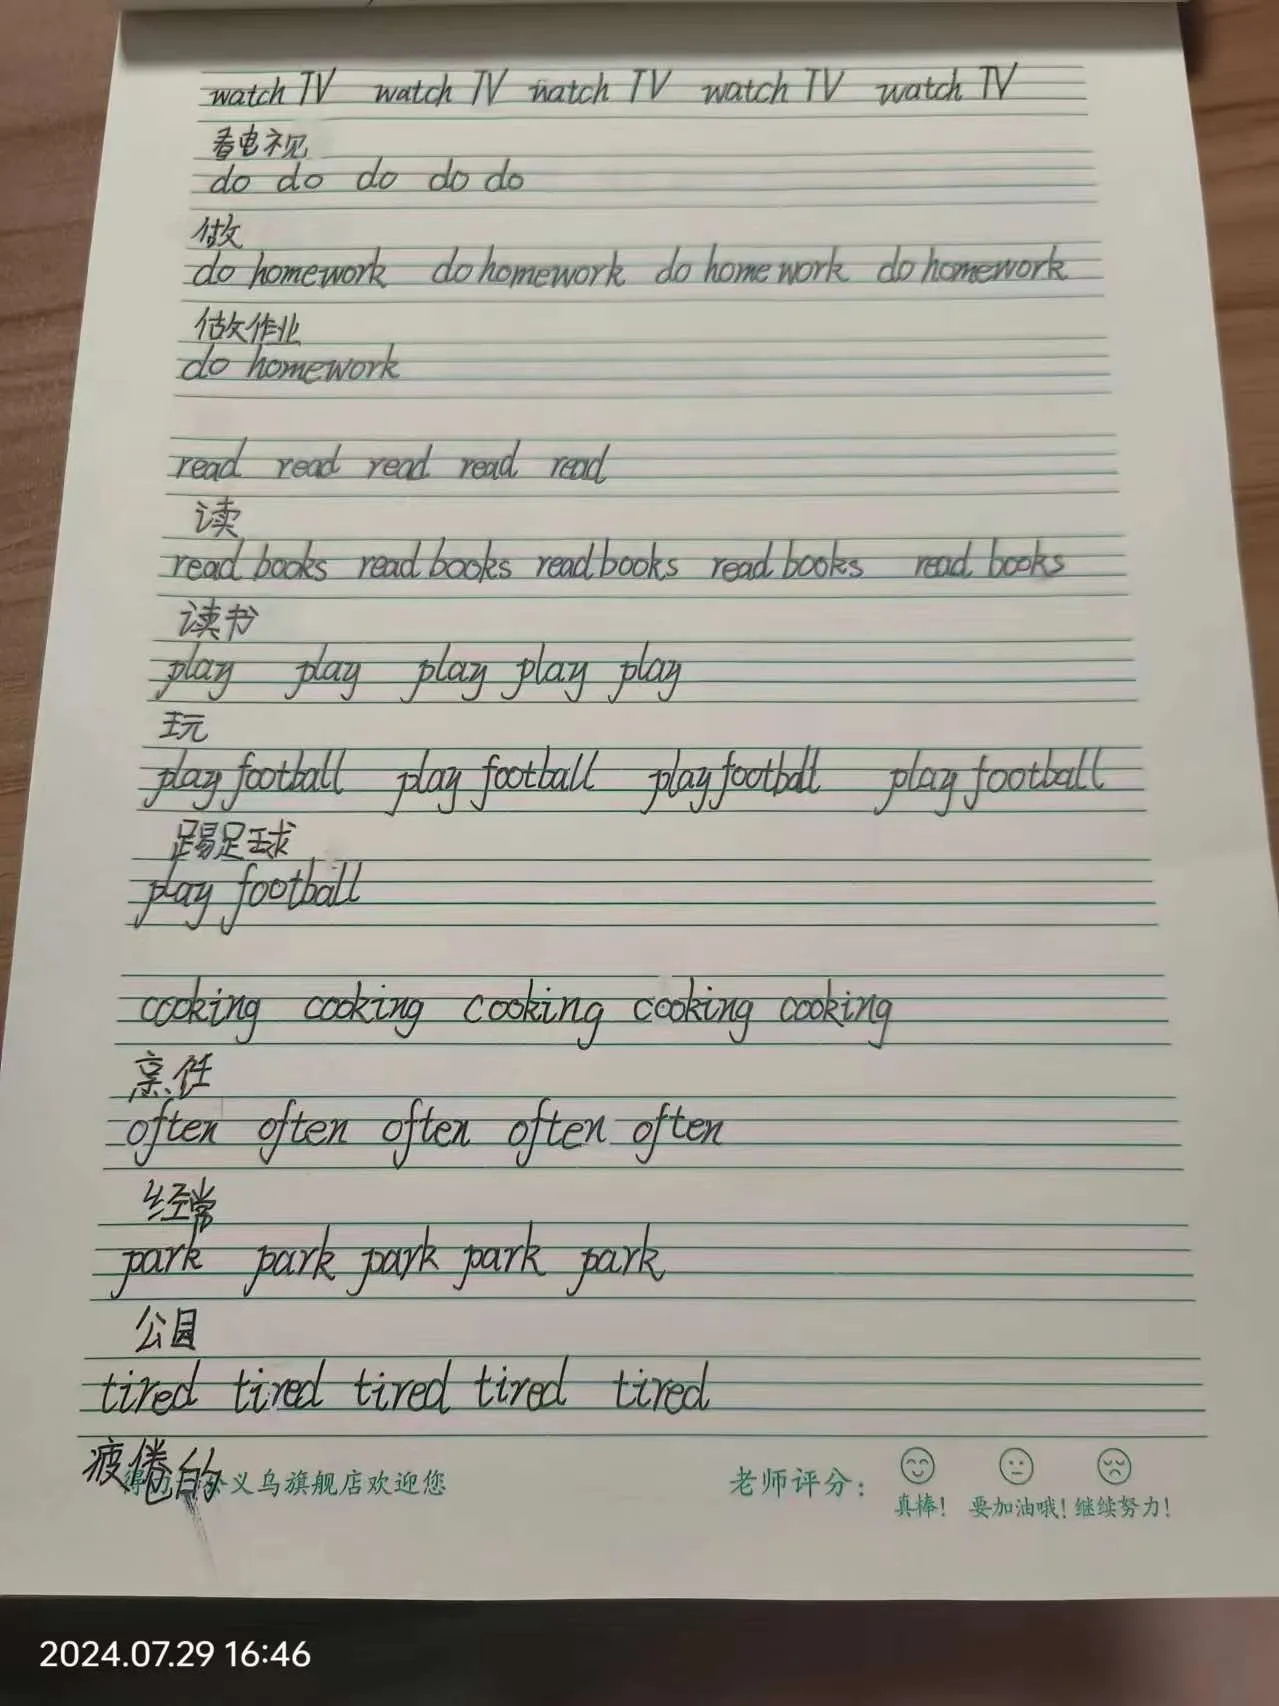 watch TV watch TV watch TV watch TV watch TV
看电视
do do do do do
做
do homework do homework do homework do homework
做作业
do homework
read read read read read
读
read books read books read books read books read books
读书
play play play play play
玩
play football play football play football play football
踢足球
play football
cooking cooking cooking cooking cooking
烹饪
often often often often often
经常
park park park park park
公园
tired tired tired tired tired
疲倦的
义乌旗舰店欢迎您 老师评分：
真棒！ 要加油哦！ 继续努力！
2024.07.29 16:46